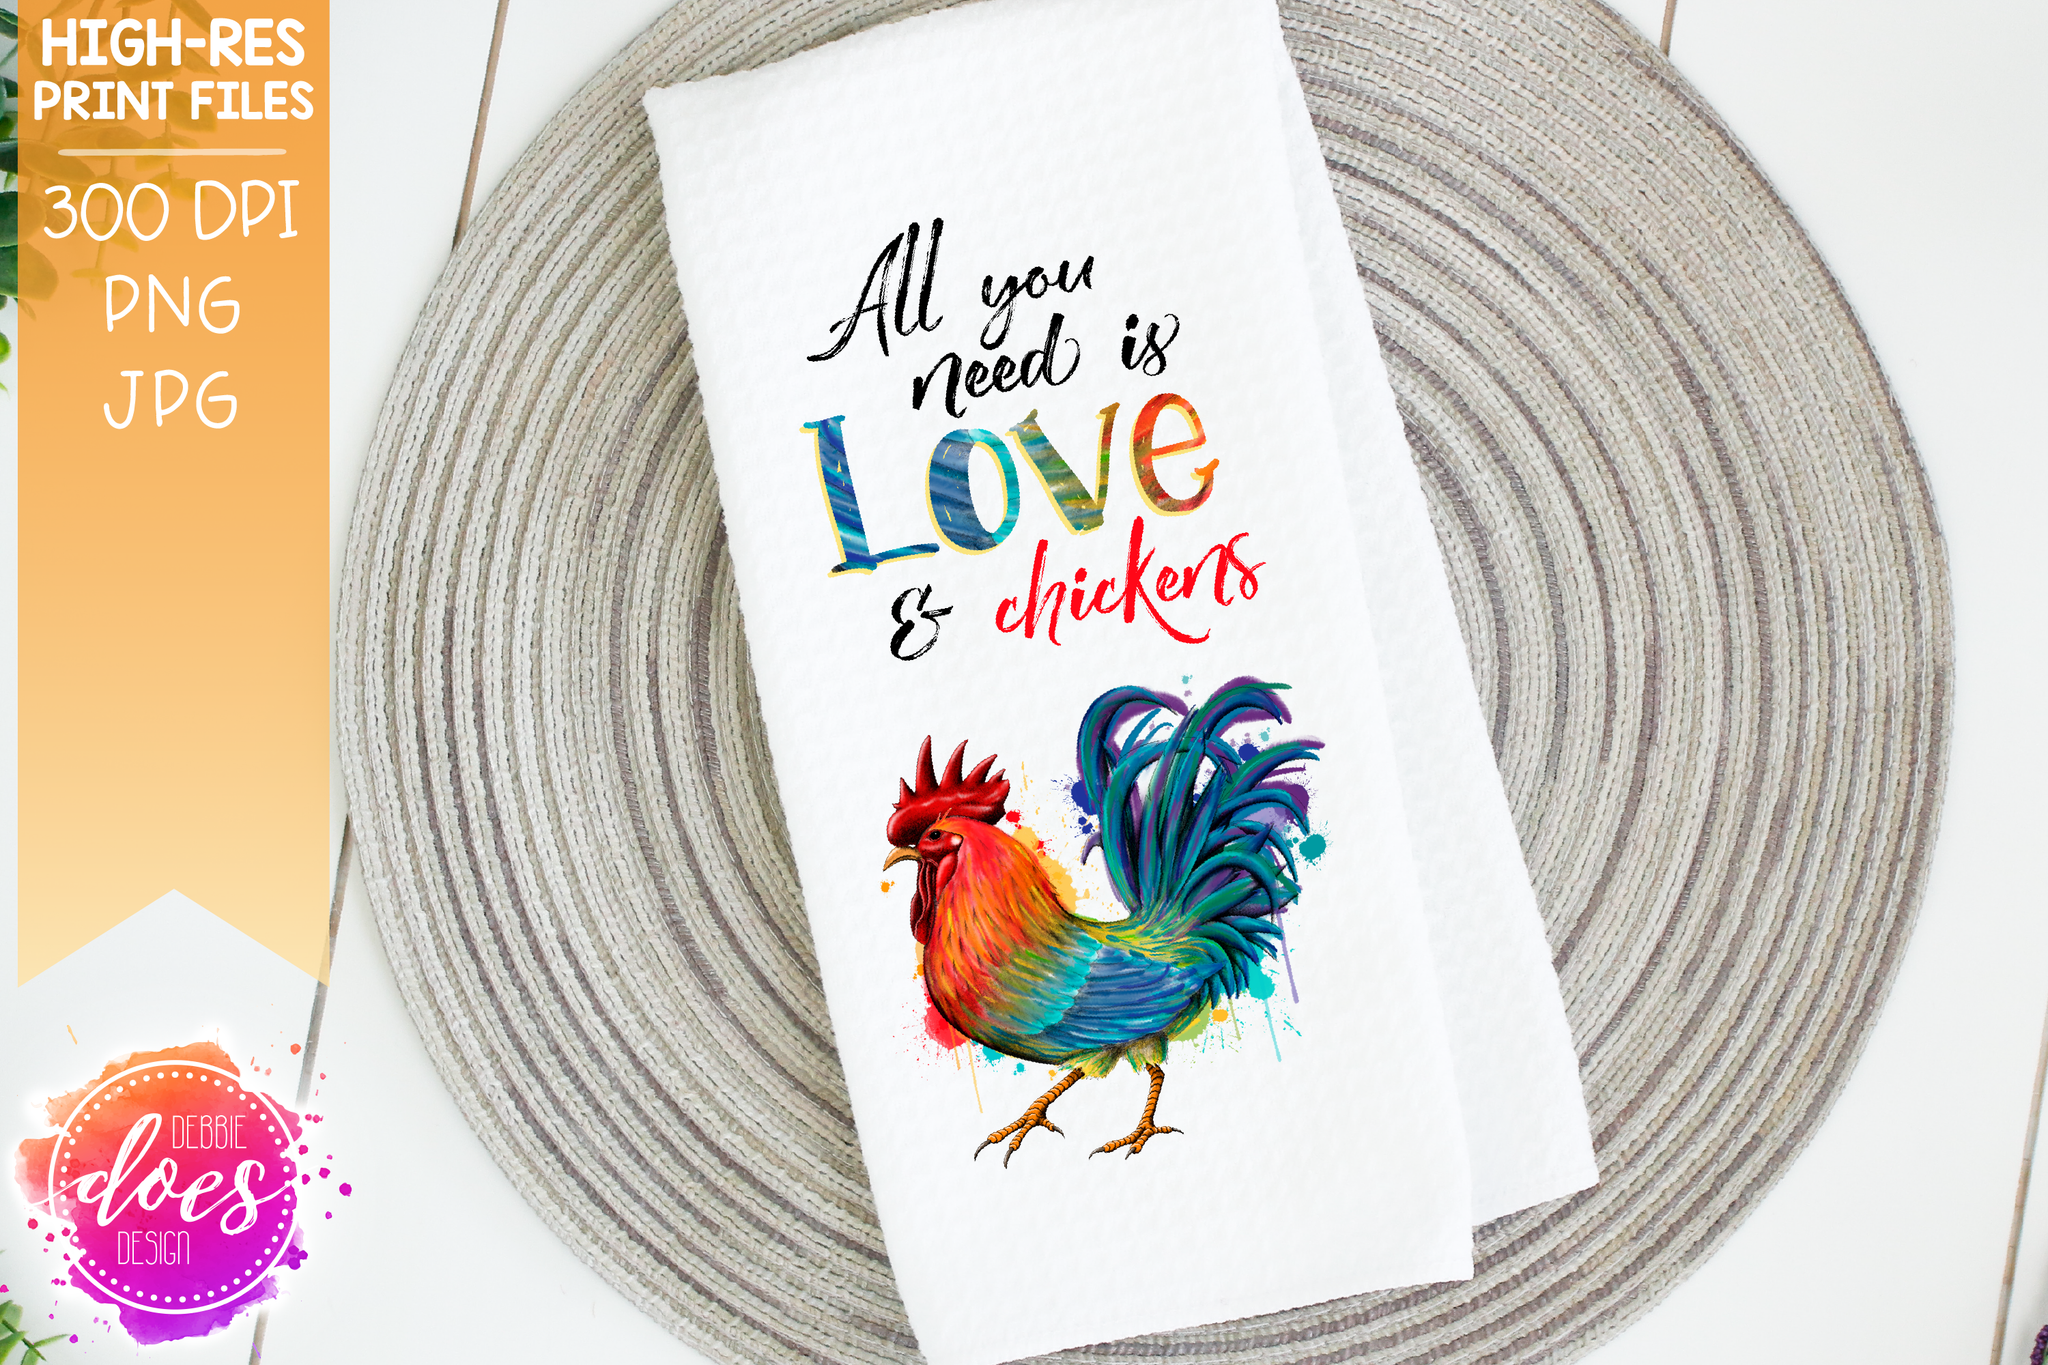 HIGH-RES
PRINT FILES
300 DPI
PNG
JPG
All you
need is
Love
& chickens
DEBBIE
does
DESIGN